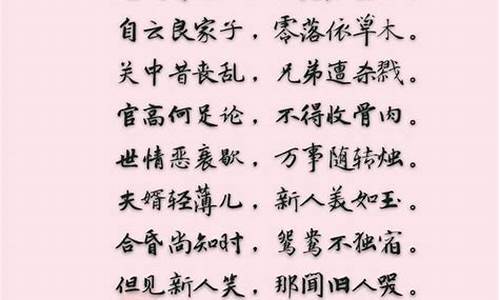 自云良家子，零落依草木。
关中昔丧乱，兄弟遭杀戮。
官高何足论，不得收骨肉。
世情恶衰歇，万事随转烛。
夫婿轻薄儿，新人美如玉。
合昏尚知时，鸳鸯不独宿。
但见新人笑，那闻旧人哭。